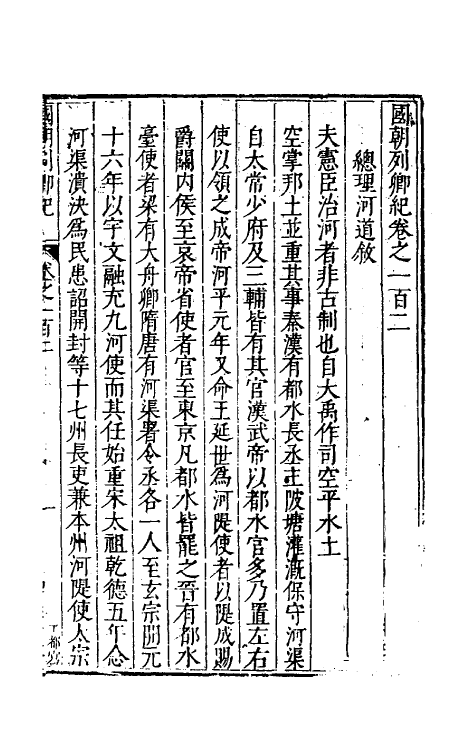 國朝列卿紀卷之一百二
總理河道敘
夫憲臣治河者非古制也自大禹作司空平水土
空掌邦土並重其事秦漢有都水長丞主陂塘灌漑保守河渠
自太常少府及三輔皆有其官漢武帝以都水官多乃置左右
使以領之成帝河平元年又命王延世爲河隄使者以隄成賜
爵關內侯至哀帝省使者官至東京凡都水皆罷之晉有都水
臺使者梁有大舟卿隋唐有河渠署令丞各一人至玄宗開元
十六年以宇文融充九河使而其任始重宋太祖乾德五年念
河渠潰決爲民患詔開封等十七州長吏兼本州河隄使太宗
國朝列卿紀 卷之一百二 一